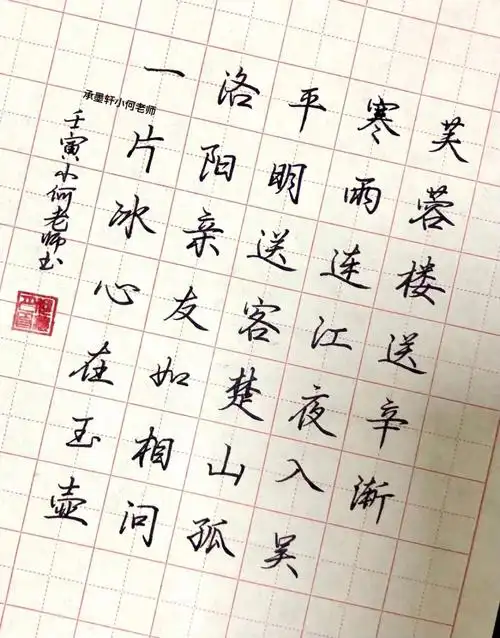 芙蓉楼送辛渐
寒雨连江夜入吴
平明送客楚山孤
洛阳亲友如相问
一片冰心在玉壶
壬寅小何老师书
承墨轩小何老师